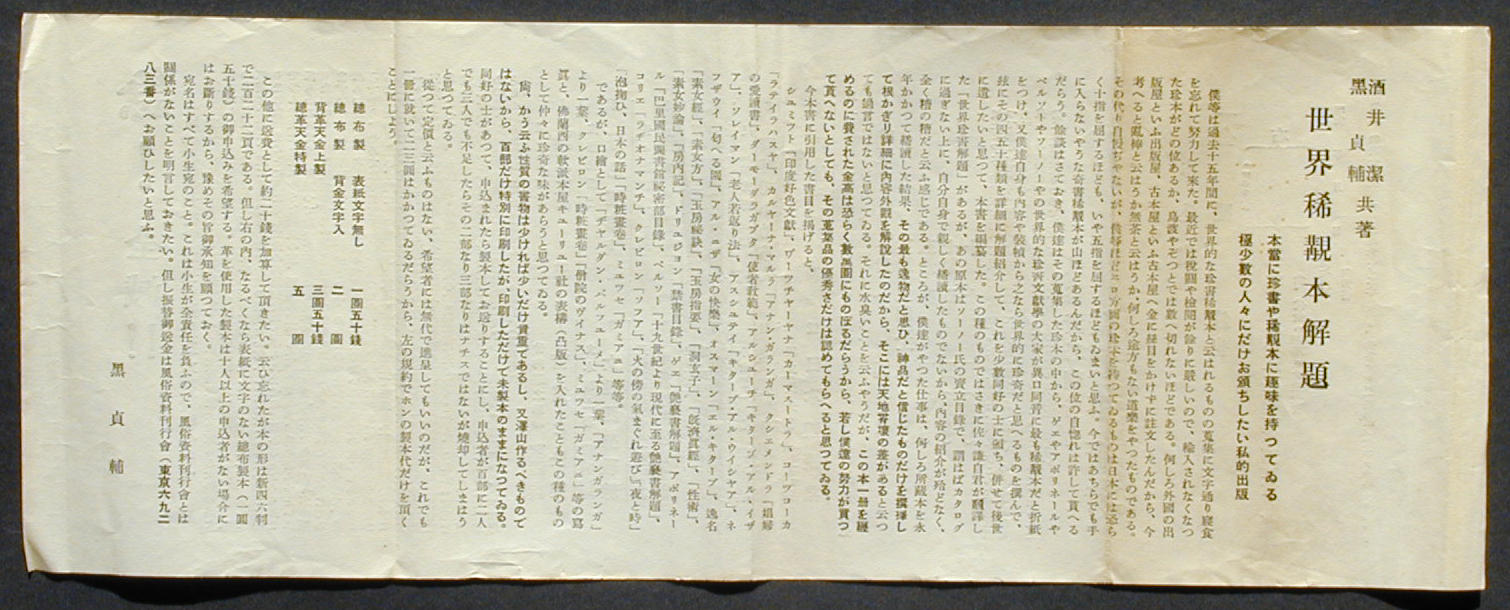 酒井潔
黑貞輔 共著
世界稀覯本解題
本當に珍書や稀覯本に趣味を持つてゐる
極少數の人々にだけお頒ちしたい私的出版
僕等は過去十五年間に、世界的な珍書稀覯本と云はれるものの蒐集に文字通り寢食
を忘れて努力して來た。最近では稅關や檢閱が餘りに嚴しいので、輸入されなくなつ
た珍本がどの位あるか、烏渡やそつとでは數へ切れないほどである。何しろ外國の出
版屋といふ出版屋、古本屋といふ古本屋へ金に糸目をかけずに註文したんだから、今
考へると亂棒と云はうか無茶と云はうか、何しろ途方もない道樂をやつたものである。
その代り自慢ぢやないが、僕等ほどエロ方面の珍本を持つてゐるものは日本には恐ら
く十指を屈するほども、いや五指を屈するほどもゐまいと思ふ。今ではあちらでも手
に入らないやうな珍書稀覯本が山ほどあるんだから、この位の自惚れは許して貰へる
だらう。餘談はさておき、僕達はその蒐集した珍本の中から、ゲエやアポリネールや
ペルソーやフーノーやの世界的な珍書文獻學の大家が異口同音に最も稀覯本だと折紙
をつけ、又僕達自身も內容や裝幀から之なら世界的に珍奇だと思へるものを撰んで、
玆にその四五十種類を詳細に解題紹介して、これを少數同好の士に頒ち、併せて後世
に遺したいと思つて、本書を編纂した。この種のものではさきに佐々謙自君が飜譯し
た「世界珍書解題」があるが、あの原本はソーノー氏の賣立目錄で、謂はばカタログ
に過ぎない上に、自分自身で親しく繙讀したものでないから、內容の紹介が殆どなく、
全く糟の糟だと云ふ感じである。ところが、僕達がやつた仕事は、何しろ所藏本を永
年かかつて繙讀した結果、その最も逸物だと思ひ、神品だと信じたものだけを撰擇し
て極かぎり詳細に內容外觀を解說したのだから、そこには天地霄壤の差があると云つ
ても過言ではないと思つてゐる。それに水臭いことを云ふやうだが、この本一册を纏
めるのに費された金高は恐らく數萬圓にものぼるだらうから、若し僕達の努力が買つ
て貰へないとしても、その蒐集品の優秀さだけは認めてもらへると思つてゐる。
今本書に引用した書目を揭げると、
シユミツト「印度好色文獻」、ワーツチヤーヤナ「カーマスートラ」、コーアコーカ
「ラテイラハスヤ」、カルヤーナ・マルラ「アナンガランガ」、クシエメンドラ「娼婦
の愛讀書」、ダモーダラグプタ「使者針範」、アルシユーチ「キターブ・アル・イザ
ア」、ソレイマン「老人若返り法」、アスシユテイ「キターブ・アル・ウイシヤア」、ネ
フザウイ「匂へる園」、アル・ユザ「女の快樂」、オスマーン「エル・キターブ」、逸名
「素女經」、「素女方」、「玉房秘訣」、「玉房指要」、「洞玄子」、「旣濟眞經」、「性術」、
「素女妙論」、「房內記」、ドリユジヨン「禁書目錄」、ゲエ「艶藝書解題」、アポリネー
ル「巴里國民圖書館秘密部目錄」、ペルソー「十九世紀より現代に至る艶藝書解題」、
コリエ「ラヂオナンマヂ」、クレビロン「ソフア」、「火の傍の氣まぐれ遊び」「夜と時」
「泡掬ひ、日本の話」「時粧畫卷」、ミユツセ「ガミアユ」等等。
であるが、口繪として「ヂヤルダン・パルフユーメ」より一葉、「アナンガランガ」
より一葉、クレビロン「時粧畫卷」「僧院のヴイナス」、ミユツセ「ガミアユ」等の寫
眞と、佛蘭西の軟派本屋キユーリユー社の表構（凸版）を入れたことこの種のもの
として仲々に珍奇な味があらうと思つてゐる。
尙、かう云ふ性質の書物は少ければ少いだけ貴重であるし、又澤山作るべきもので
はないから、百部だけ特別に印刷したが、印刷しただけで未製本のままになつてゐる。
同好の士があつて、申込まれたら製本してお送りすることにし、申込者が百部に二人
でも三人でも不足したらその二部なり三部なりはナチスではないが燒却してしまはう
と思つてゐる。
從つて定價と云ふものはない、希望者には無代で進呈してもいいのだが、これでも
一册に就いて二三圓はかかつてゐるだらうから、左の規約でホンの製本代だけを頂く
ことにしよう。
總布製 表紙文字無し 一圓五十錢
總布製 背金文字入 二圓
背革天金上製 三圓五十錢
總革天金特製 五圓
この他に送費として約二十錢を加算して頂きたい。云ひ忘れたが本の形は新四六判
で二百二十二頁である。但し右の內、なるべくなら表紙に文字のない總布製本（一圓
五十錢）の御申込みを希望する。革を使用した製本は十人以上の申込者がない場合に
はお斷りするから、豫めその旨御承知を願つておく。
宛名はすべて小生宛のこと。これは小生が全責任を負ふので、風俗資料刊行會とは
關係がないことを明言しておきたい。但し振替御送金は風俗資料刊行會（東京六九二
八三番）へお願ひしたいと思ふ。
黑貞輔